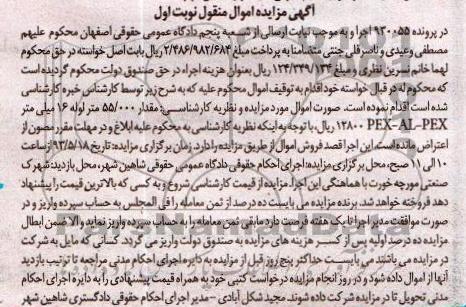 آگهی مزایده اموال منقول نوبت اول
در پرونده ۹۲۰۰۵۵ اجرا و به موجب نیابت ارسالی از شعبه پنجم دادگاه عمومی حقوقی اصفهان محکوم علیهم
مصطفی وعیدی و ناصرقلی جنتی متضامنا به پرداخت مبلغ ۲/۴۸۶/۹۸۲/۶۸۴ ریال بابت اصل خواسته در حق محکوم
لهما خانم نسرین نظری و مبلغ ۱۲۴/۳۴۹/۱۳۴ ریال بعنوان هزینه اجراء در حق صندوق دولت محکوم گردیده است
که محکوم له در قبال خواسته خود اقدام به توقیف اموال محکوم علیه که به شرح زیر توسط کارشناس خبره کارشناسی
شده است اقدام نموده است. صورت اموال مورد مزایده و نظریه کارشناسی: مقدار ۵۵/۰۰۰ متر لوله ۱۶ میلی متر
PEX-AL-PEX ۱۳۸۰۰ ریال، با توجه به اینکه نظریه کارشناسی به محکوم علیه ابلاغ و در مهلت مقرر مصون از
اعتراض مانده است. این اجرا قصد فروش اموال از طریق مزایده را دارد. زمان برگزاری مزایده: تاریخ ۹۲/۵/۱۸ از ساعت
۱۰ الی ۱۱ صبح، محل برگزاری مزایده: اجرای احکام حقوقی دادگاه عمومی حقوقی شاهین شهر، محل بازدید: شهرک
صنعتی مورچه خورت با هماهنگی این اجرا. مزایده از قیمت کارشناسی شروع و به کسی که بالاترین قیمت را پیشنهاد
دهد فروخته خواهد شد. برنده مزایده می بایست ده درصد از ثمن معامله را فی المجلس به حساب سپرده واریز و در
صورت موافقت مدیر اجرا تا یک هفته فرصت دارد مابقی ثمن معامله را به حساب سپرده واریز نماید والا ضمن ابطال
مزایده ده درصد اولیه پس از کسر هزینه های مزایده به صندوق دولت واریز می گردد. کسانی که مایل به شرکت
در مزایده می باشند می بایست حداکثر پنج روز قبل از مزایده به دایره اجرای احکام مدنی مراجعه تا ترتیب بازدید
آنها از اموال داده شود و در روز انجام مزایده درخواست کتبی خود به همراه قیمت پیشنهادی را به دایره اجرای احکام
مدنی تحویل تا در مزایده شرکت داده شوند. مجید شکل آبادی - مدیر اجرای احکام حقوقی دادگستری شاهین شهر